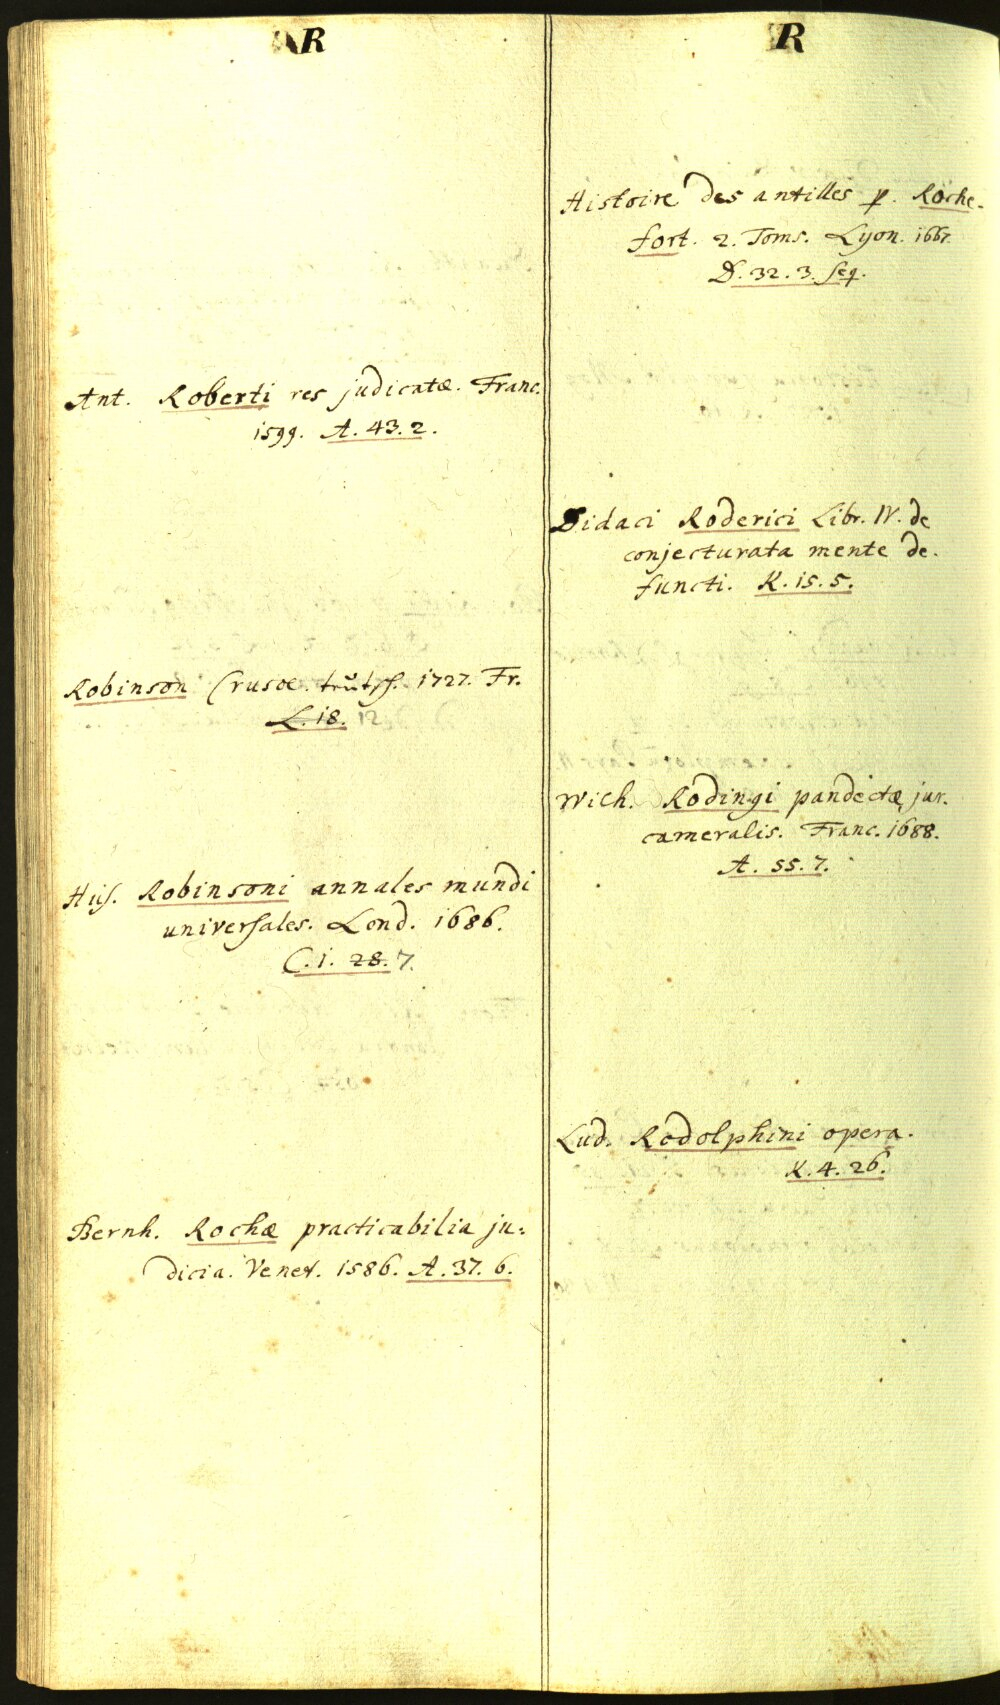 R
Ant. Roberti res judicatæ. Franc.
1599. A. 43. 2.
Robinson Crusoe. teütsch. 1727. Fr.
L. 18. 12
Hug. Robinsoni annales mundi
universales. Lond. 1686.
C. 1. 28. 7.
Bernh. Rochæ practicabilia ju-
dicia. Venet. 1586. A. 37. 6.
R
Histoire des antilles p. Roche-
fort. 2. Toms. Lyon. 1667.
D. 32. 3. seq.
Didaci Roderici Libr. IV. de
conjecturata mente de-
functi. K. 15. 5.
Wilh. Rodingi pandectæ jur.
cameralis. Franc. 1688.
A. 55. 7.
Lud. Rodolphini opera.
K. 4. 26.